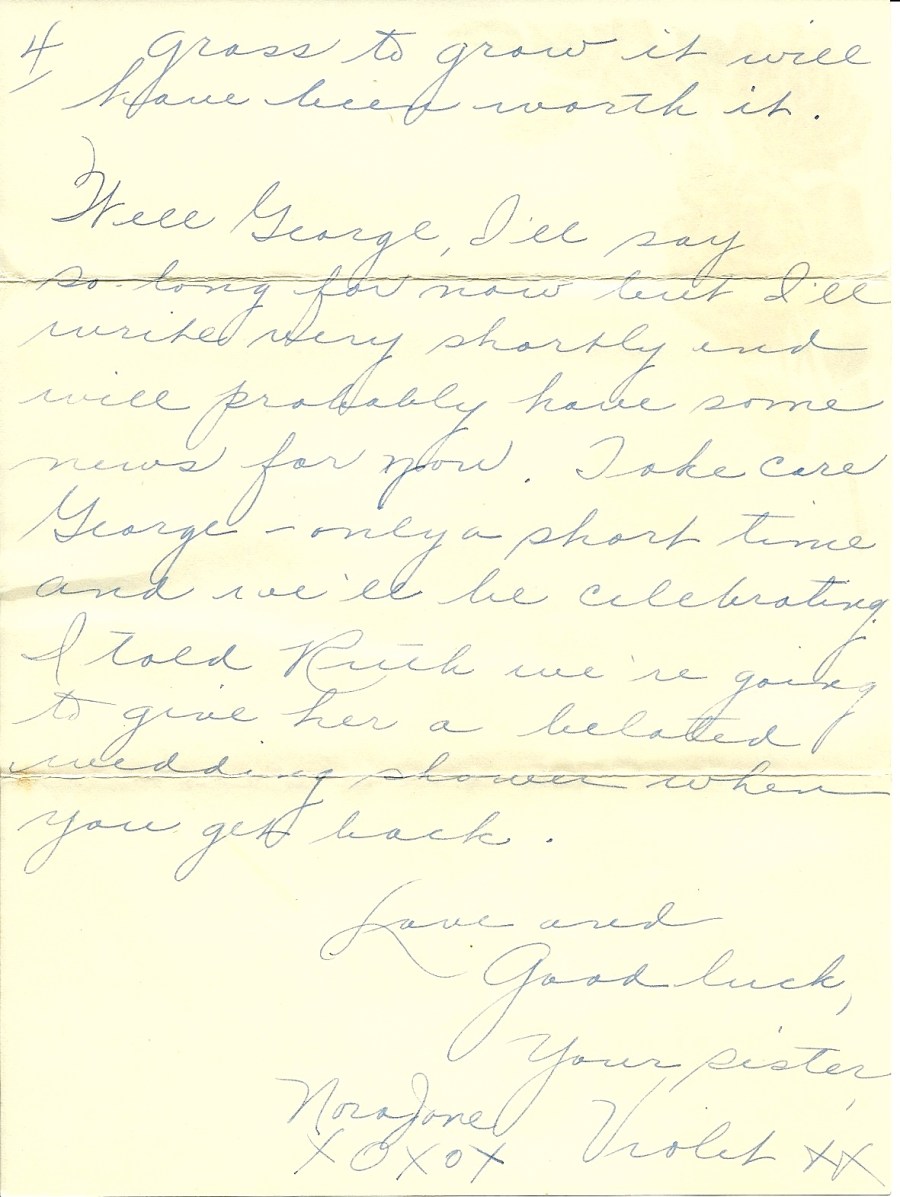 4/ grass to grow it will
have been worth it.
Well George, I'll say
so-long for now but I'll
write very shortly and
will probably have some
news for you. Take care
George - only a short time
and we'll be celebrating.
I told Ruth we're going
to give her a belated
wedding shower when
you get back.
Love and
Good luck,
Your sister,
Nora Jane Violet XX
XOXOX